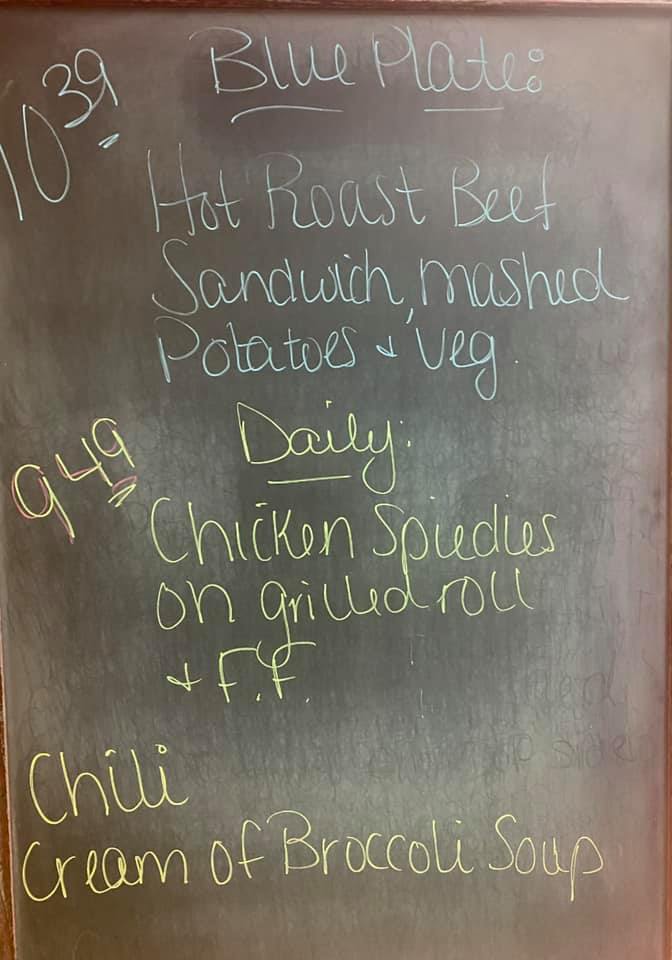 10 39 Blue Plate:
Hot Roast Beef
Sandwich, mashed
Potatoes + Veg.
9 49 Daily:
Chicken Spiedies
on grilled roll
+ F.F.
Chili
Cream of Broccoli Soup